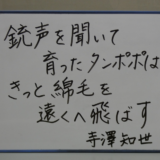 銃声を聞いて
育ったタンポポは
きっと綿毛を
遠くへ飛ばす
寺澤知世